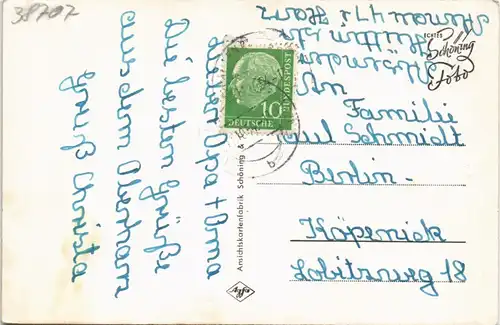 38707
Lieber Opa + Oma
Die besten Grüße
aus dem Oberharz
Gruß Christa
Ansichtskartenfabrik Schöning &
Agfa
10
DEUTSCHE
BUNDESPOST
ECHTES
Schöning
Foto
Altenau
Harz
An
Familie
Paul Schmidt
Berlin-
Köpenick
Lobitzweg 18